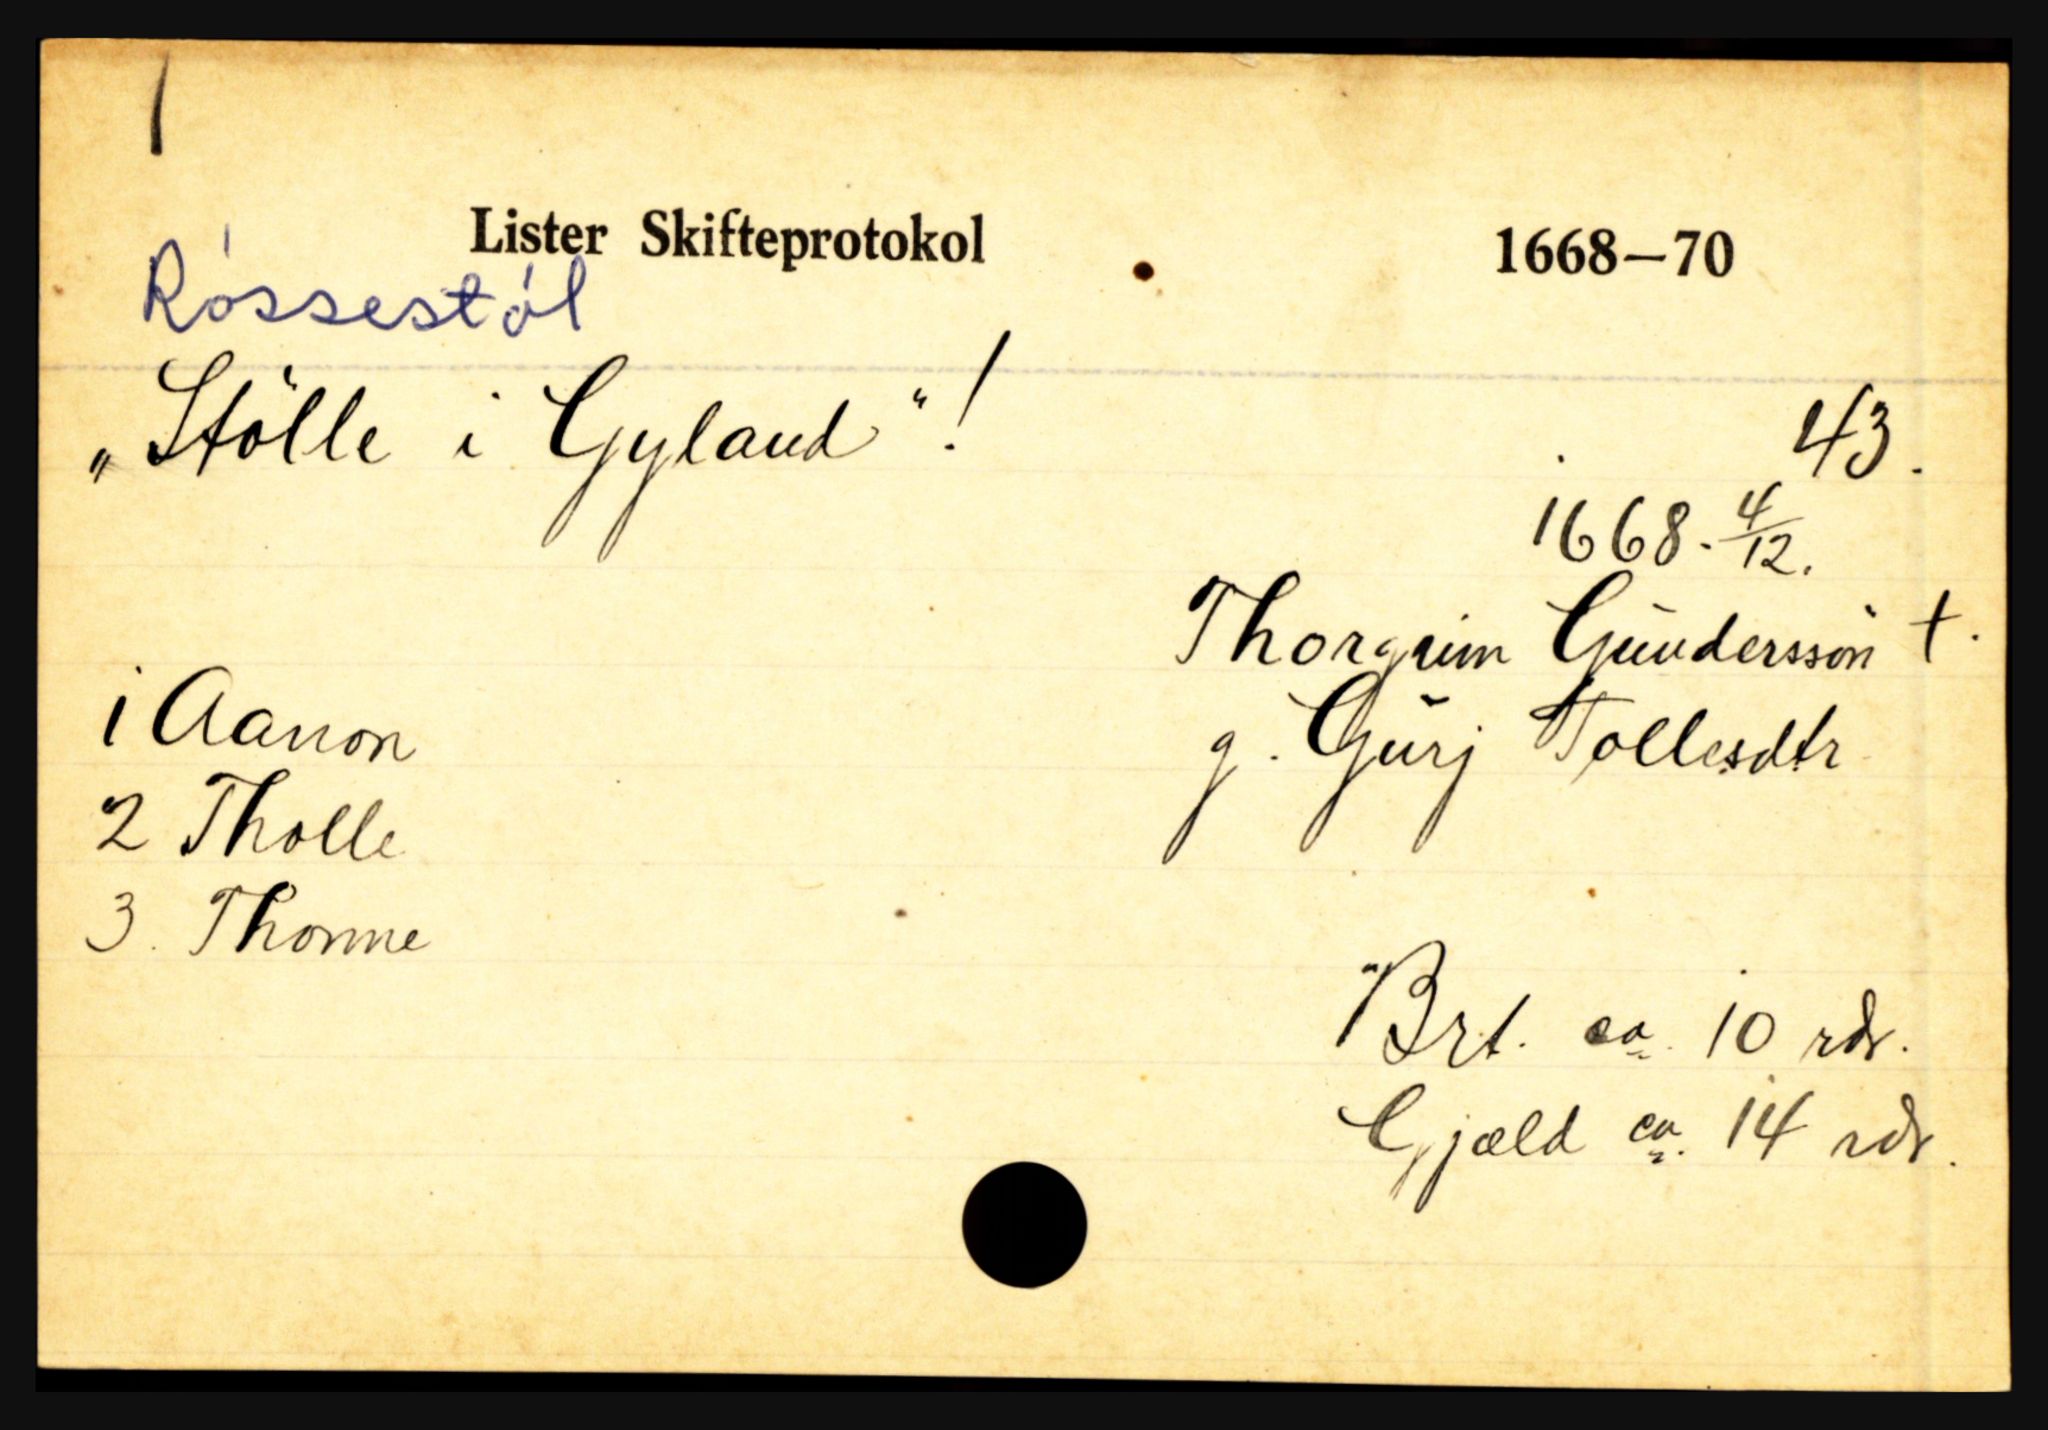 1
Lister Skifteprotokol 1668—70
Róssestól
„Stölle i Gyland“!
43.
1668. 4/12.
Thorgrim Gŭnderssön †.
g. Gŭrj Tollesdtr
1 Aanon
2 Tholle
3. Thonne
Brt. ca. 10 rdr.
Gjæld ca. 14 rdr.